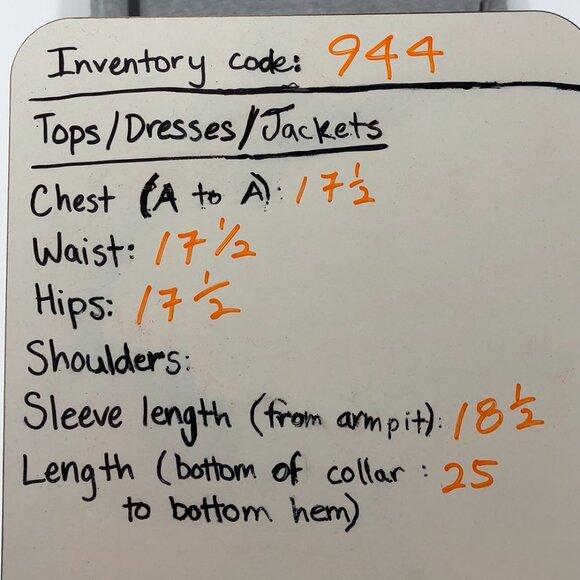 Inventory code: 944
Tops/Dresses/Jackets
Chest (A to A): 17 1/2
Waist: 17 1/2
Hips: 17 1/2
Shoulders:
Sleeve length (from armpit): 18 1/2
Length (bottom of collar : 25
to bottom hem)